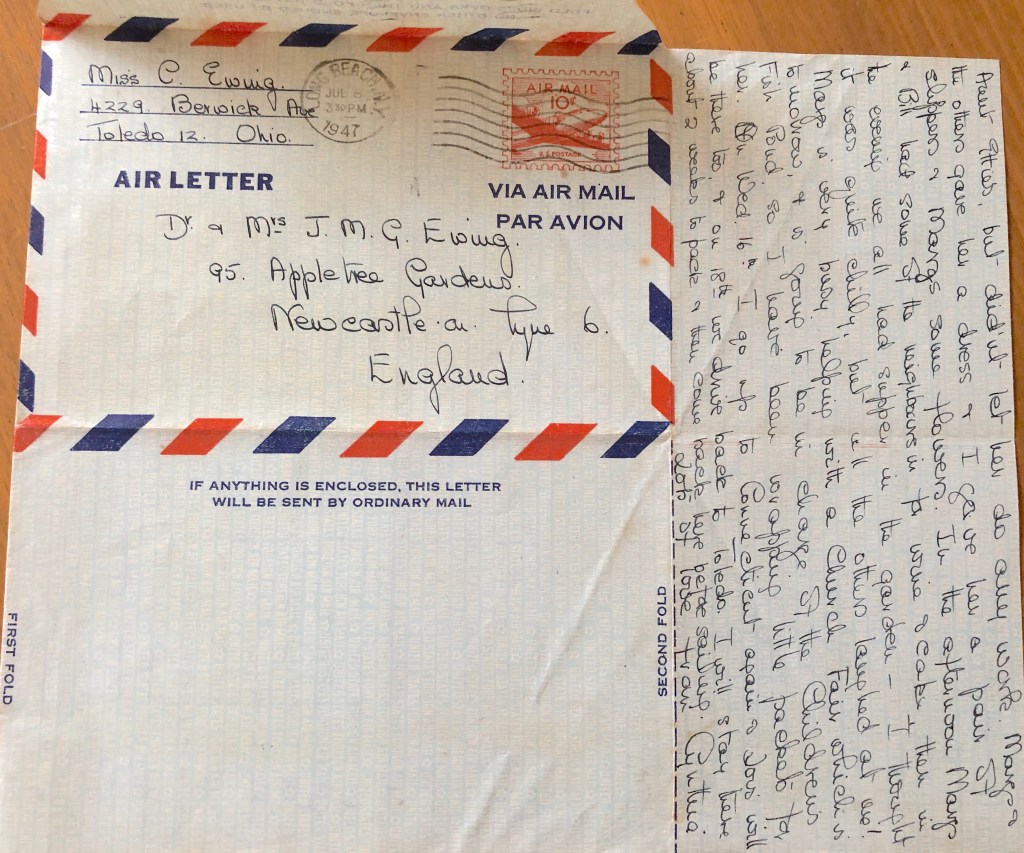 Miss C. Ewing.
4229. Berwick Ave
Toledo 12. Ohio.
LONG BEACH, N.Y.
JUL 8
3:30 PM
1947
AIR MAIL
10¢
U.S. POSTAGE
AIR LETTER
VIA AIR MAIL
PAR AVION
Dr. & Mrs J. M. G. Ewing.
95. Appletree Gardens.
Newcastle. on. Tyne 6.
England.
IF ANYTHING IS ENCLOSED, THIS LETTER
WILL BE SENT BY ORDINARY MAIL
FIRST FOLD
SECOND FOLD
Aunt Etties, but did'nt let her do any work. Margs &
the others gave her a dress & I gave her a pair of
slippers & Margs some flowers. In the afternoon Margs
& Bill had some of the neighbours in for wine & cake & then in
the evening we all had supper in the garden – I thought
it was quite chilly, but all the others laughed at me!
Margs is very busy helping with a Church Fair which is
tomorrow, & is going to be in charge of the Childrens
Fish Pond, so I have been wrapping little parcels for
her. On Wed 16th I go up to Connecticut again & Dois will
be there too, & on 18th we drive back to Toledo. I will stay there
about 2 weeks to pack & then come back here before sailing.
Lots of love from Cynthia